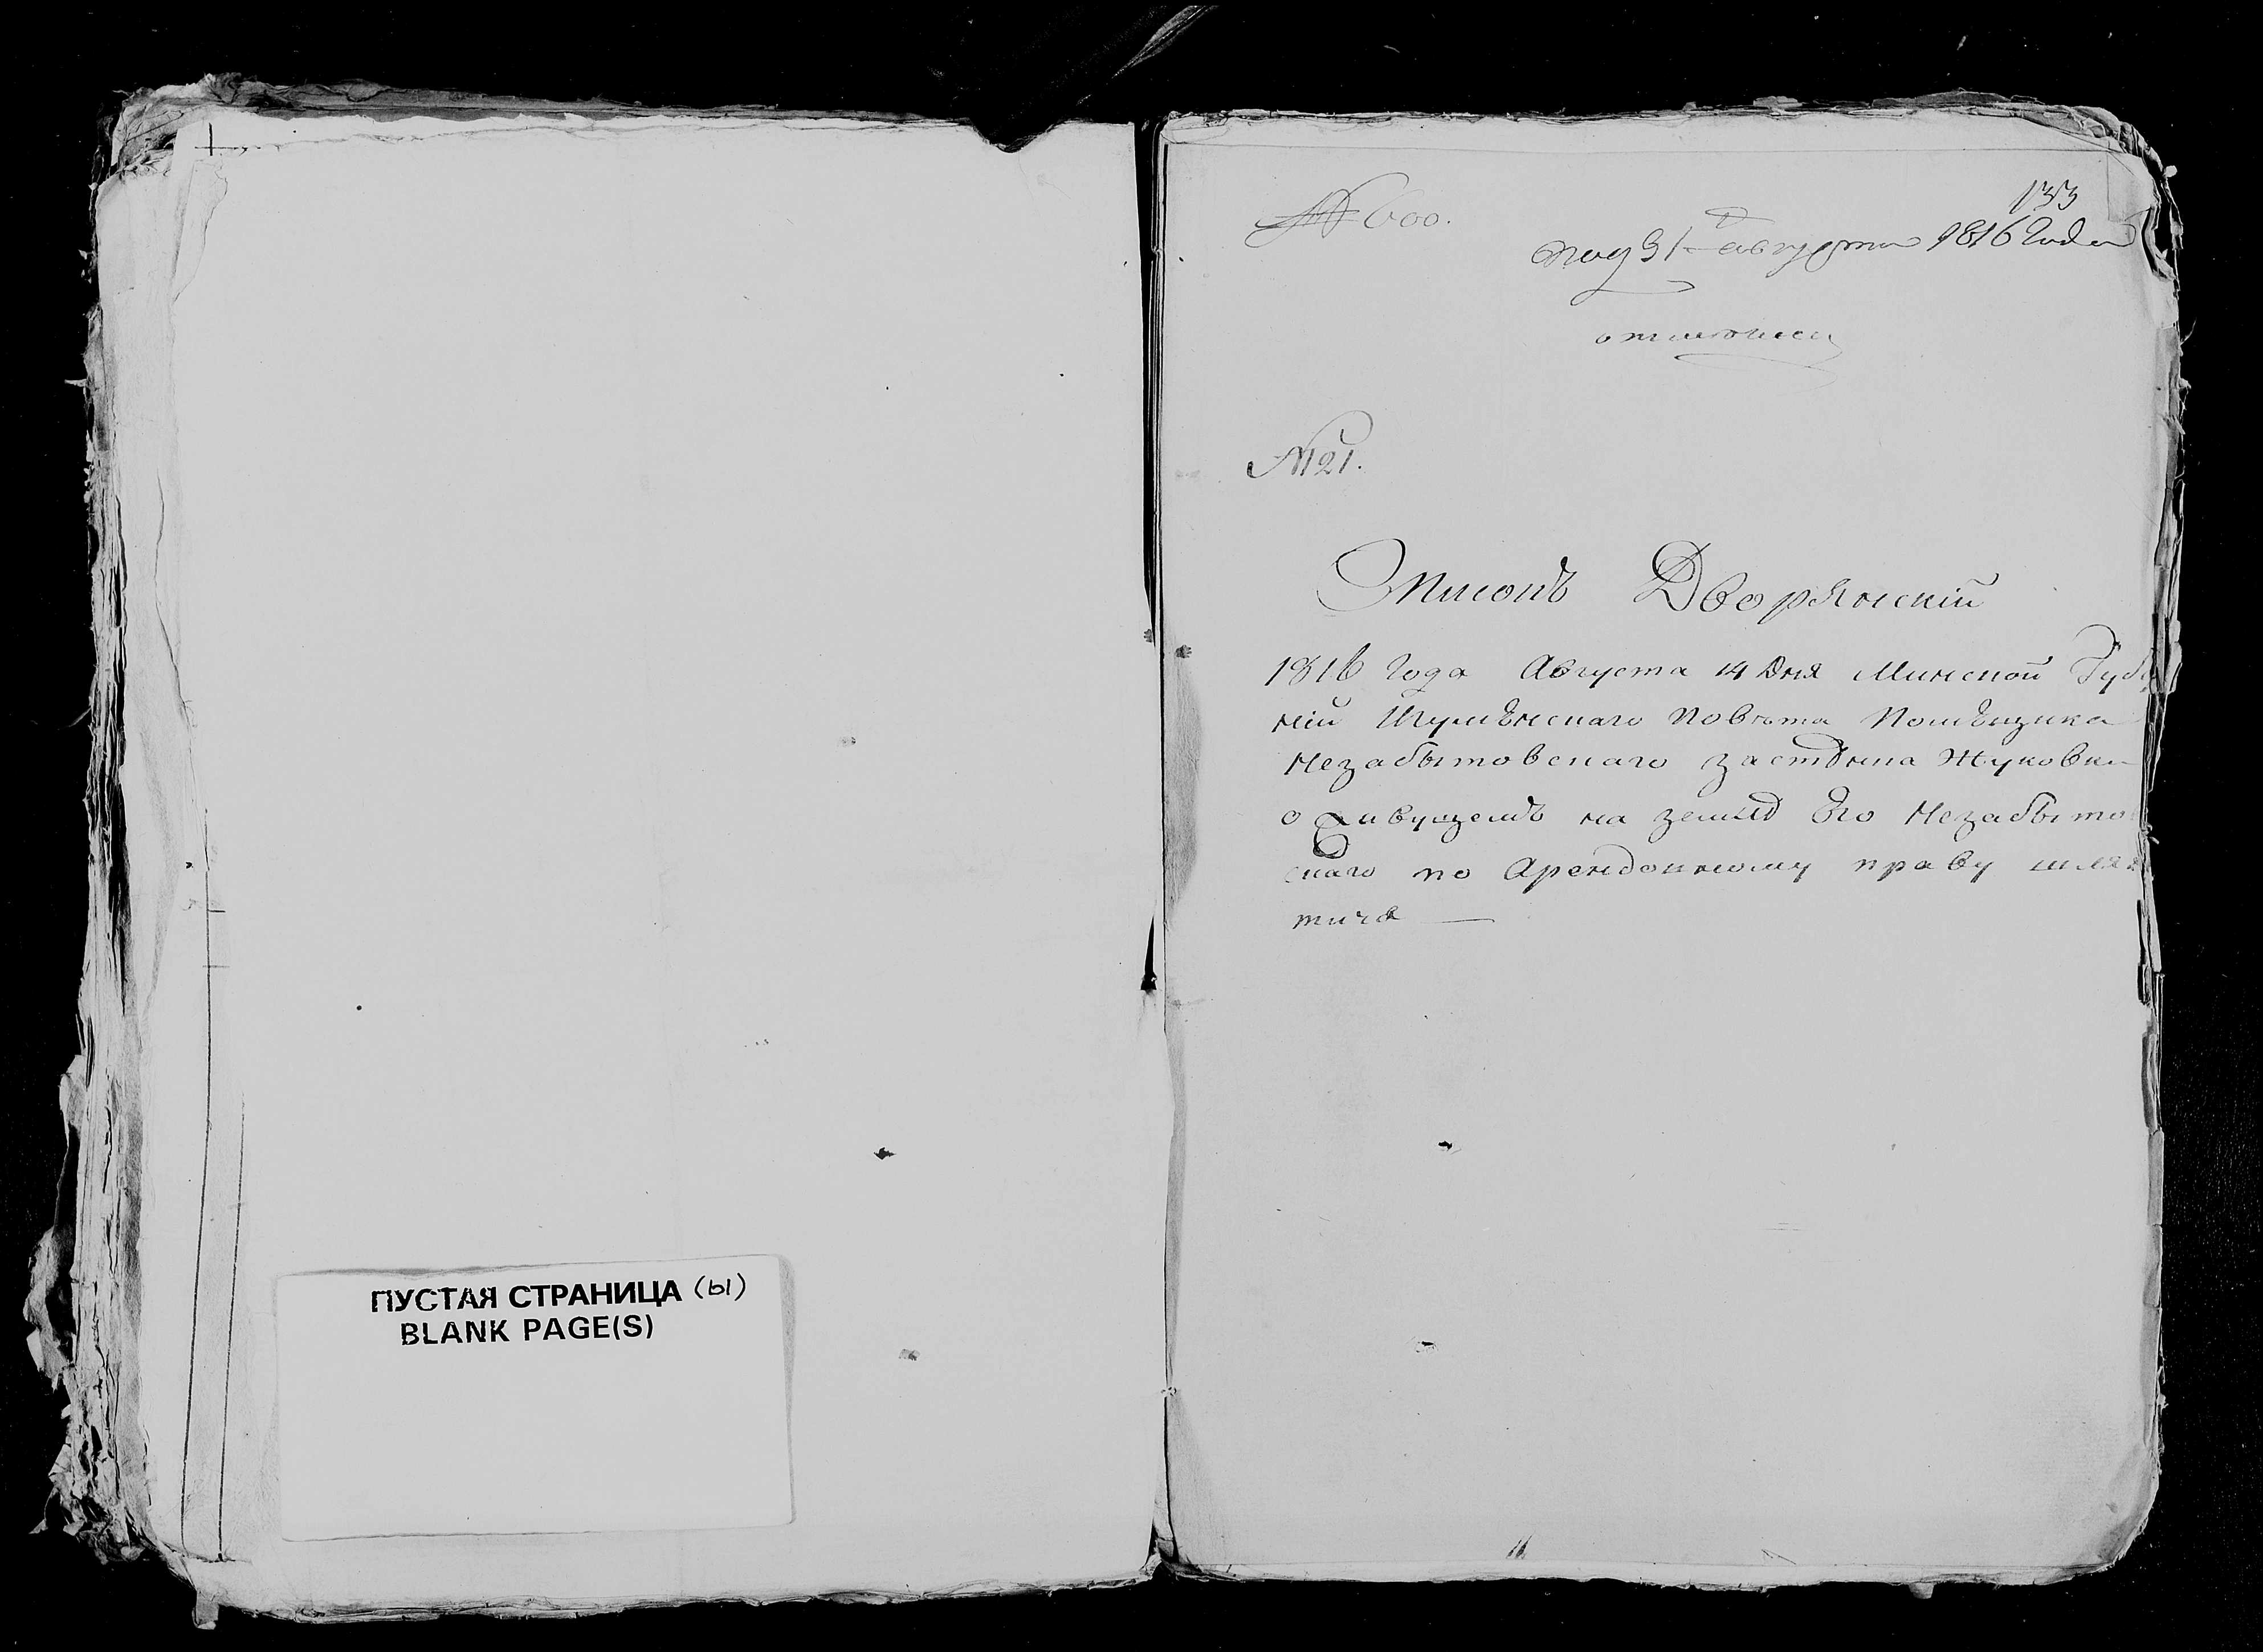 ПУСТАЯ СТРАНИЦА (ы)
BLANK PAGE(S)
133
№ 600.
под 31 августа 1816 Года
№ 21.
Списокъ Дворянскій
1816 Года Августа 14 Дня Минской Губ
ніи Игумѣнскаго Повѣта Помѣщика
Незабытовскаго Застѣнка Жуковки
о живущемъ на землѣ Его Незабыто
скаго по Арендовному праву шлях
тичѣ —